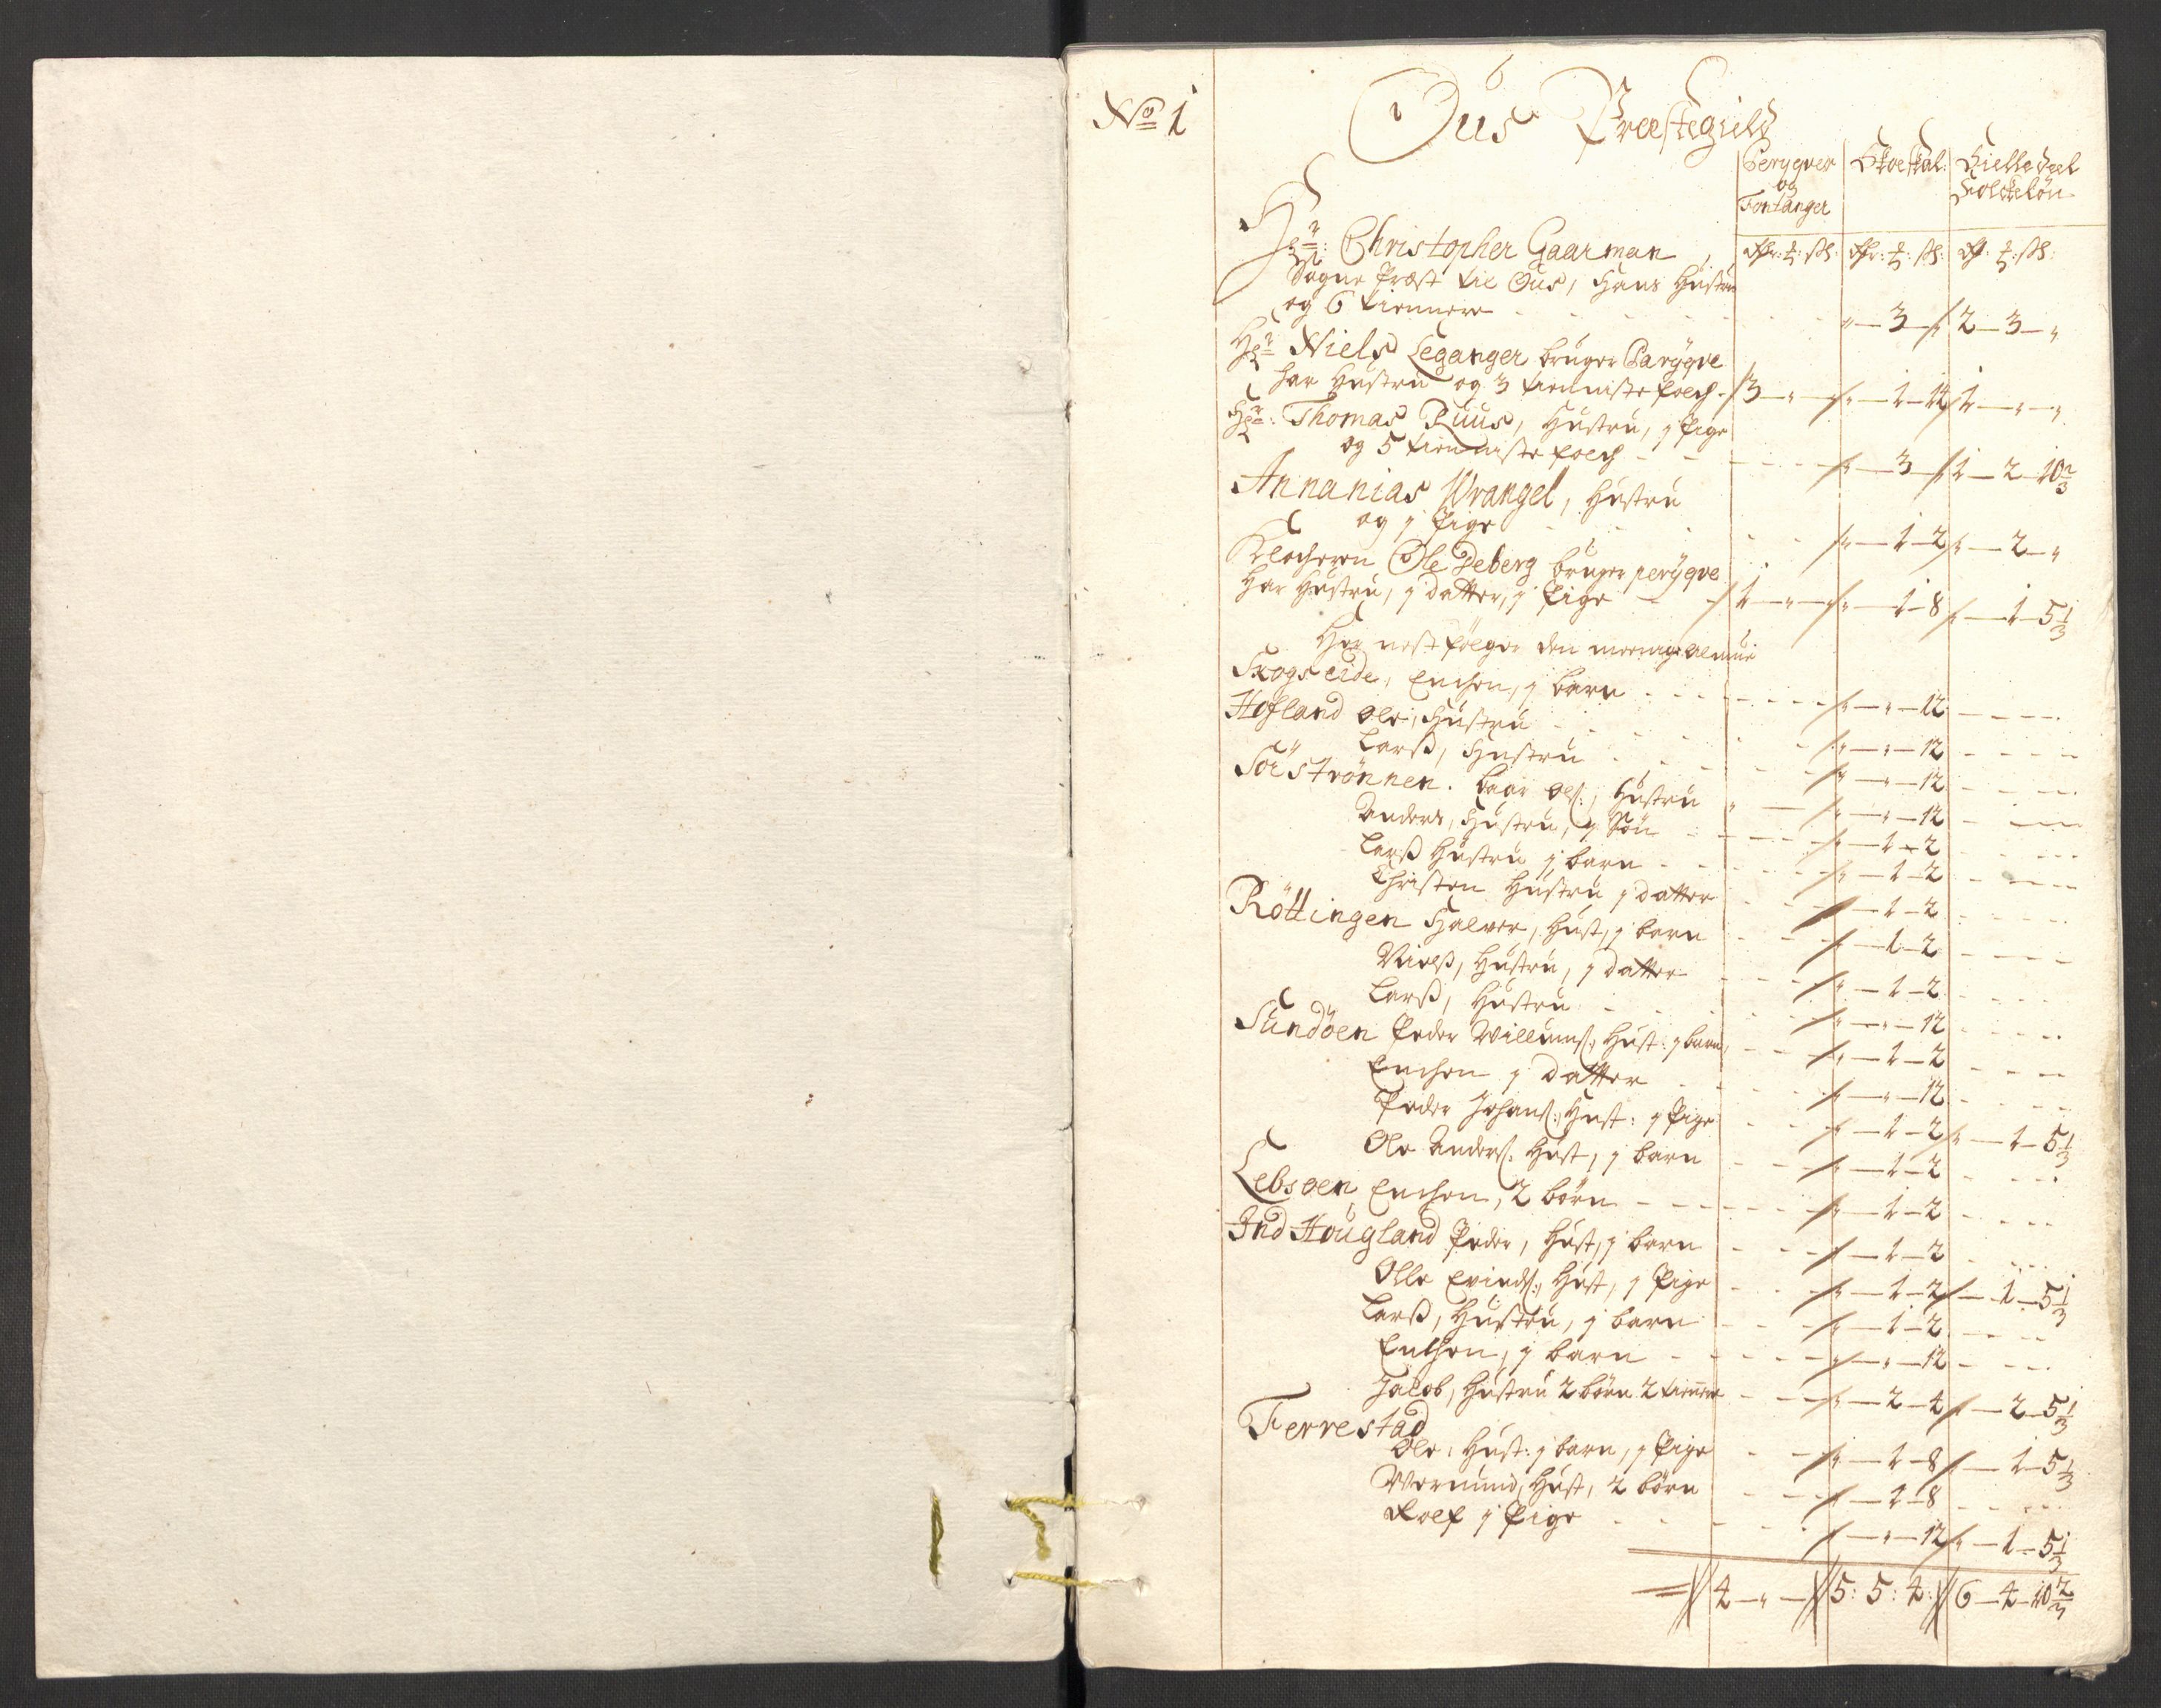 No 1
Ous Præstegield
Peryqver og Fontanger | Skoeskat | Kielledeel Folckeløn
Hr: Christopher Gaarman
Sogne Præst til Ous, Hans Hustru
og 6 tiennere - - " — 3 — / 2 — 3 — "
Hr Niels Leganger bruger Parÿqve
har Hustru og 3 tienniste folch - / 3 — " — / " — 1 — 14 / 1 — " — "
Hr: Thomas Ruus, Hustru, 1 Pige
og 5 tienniste folch - - / " — 3 — / 1 — 2 — 10 2/3
Annanias Wrangel, Hustru
og 1 Pige - - / " — 1 — 2 / " — 2 — "
Klocheren Ole Deberg bruger perÿqve
har Hustru, 1 datter, 1 Pige - / 1 — " — / " — 1 — 8 / — 1 — 5 1/3
Her nest følger den meenige almue
Skogseide, Enchen, 1 barn - - / " — " — 12
Hofland Ole, Hustru - - / " — " — 12
Larß, Hustru - - / " — " — 12
Sörströnnen. baar Ols:, Hustru - / " — " — 12
Anders, Hustru, 1 Søn - - / — 1 — 2
Larß Hustru 1 barn - - / " — 1 — 2
Christen Hustru 1 datter - / — 1 — 2
Röttingen Halvor, Hust, 1 barn - - / — 1 — 2
Nielß, Hustru, 1 datter - / " — 1 — 2
Larß, Hustru - - / " — " — 12
Sundöen Peder Willums:, Hust: 1 barn, - - / " — 1 — 2
Enchen 1 datter - - / " — " — 12
Peder Johans:, Hust: 1 Pige - / " — 1 — 2 / " — 1 — 5 1/3
Ole Anders: Hust, 1 barn - / " — 1 — 2
Lebsøen, Enchen, 2 börn - - / " — 1 — 2
Ind Hougland Peder, Hust, 1 barn - - / — 1 — 2
Olle Evinds:, Hust, 1 Pige - - / " — 1 — 2 / — 1 — 5 1/3
Larß, Hustru, 1 barn - - / " — 1 — 2
Enchen, 1 barn - - / — " — 12
Jacob, Hustru 2 börn 2 tiennere - - / " — 2 — 4 / — 2 — 5 1/3
Ferrestad
Ole, Hust: 1 barn, 1 Pige - - / " — 1 — 8 / — 1 — 5 1/3
Wermund, Hust, 2 börn - - / — 1 — 8
Rolf 1 Pige - - / — " — 12 / " — 1 — 5 1/3
= // 4 — " — // 5: 5: 4: // 6 — 4 — 10 2/3